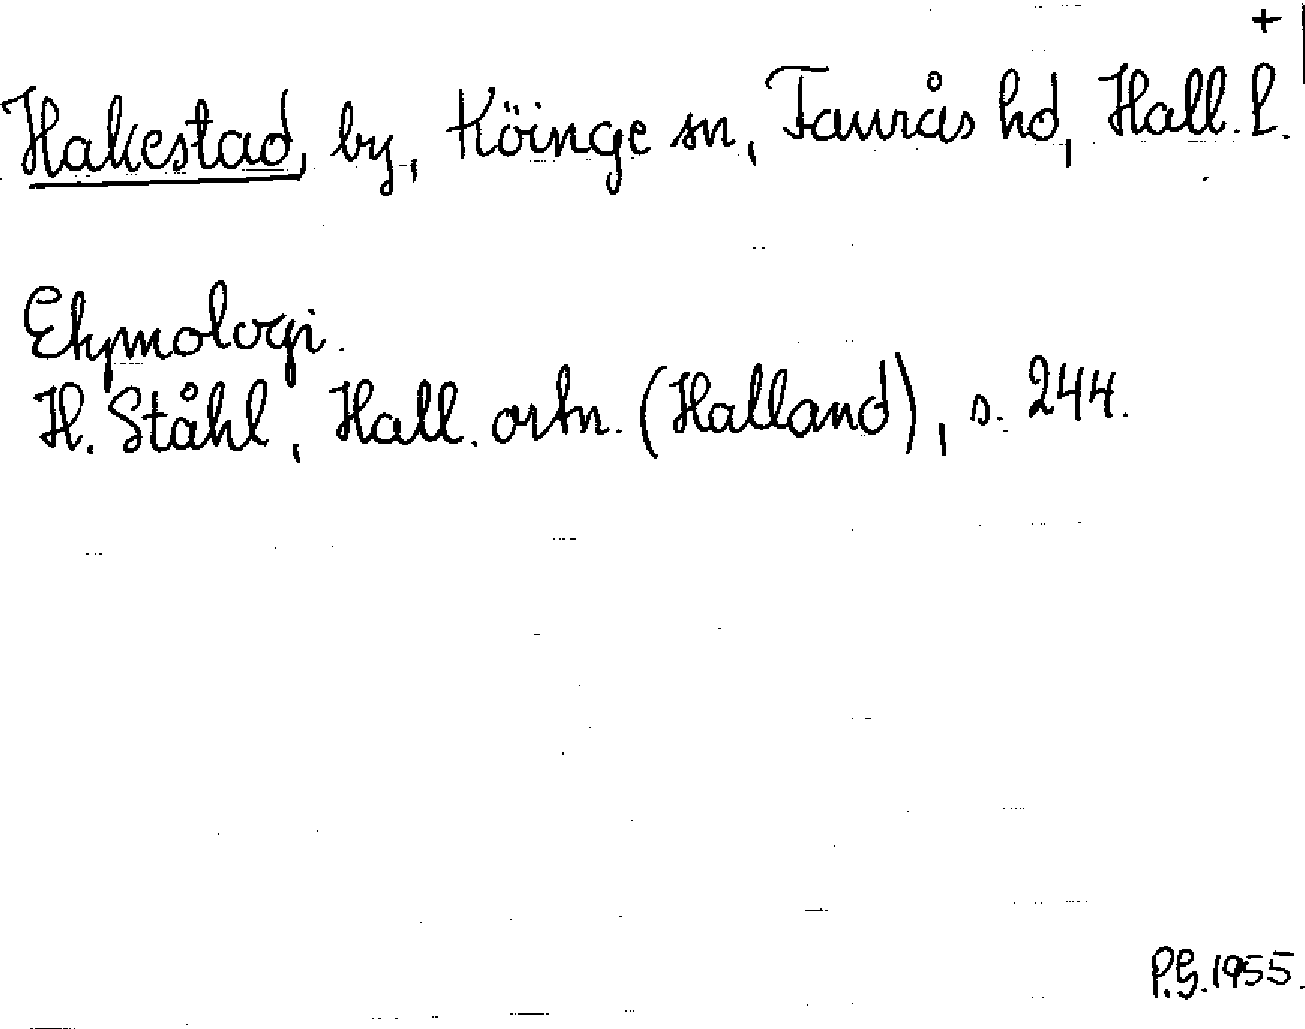 +
Hakestad, by, Köinge sn, Faurås hd, Hall. l.
Etymologi.
H. Ståhl, Hall. ortn. (Halland), s. 244.
P.G. 1955.